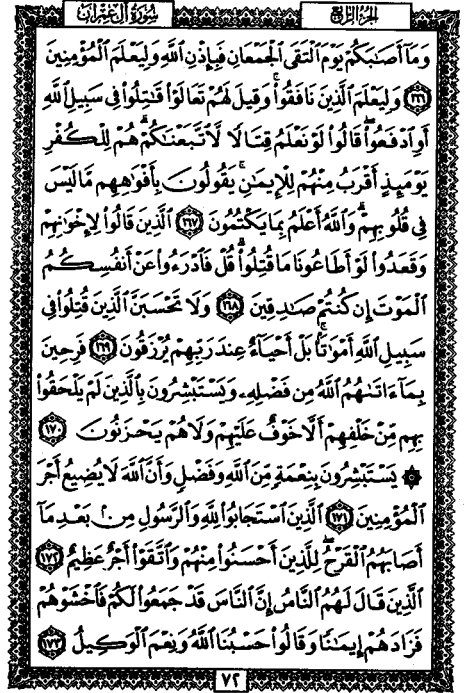 الجزء الرابع
سورة آل عمران
وَمَآ أَصَـٰبَكُمۡ يَوۡمَ ٱلۡتَقَى ٱلۡجَمۡعَانِ فَبِإِذۡنِ ٱللَّهِ وَلِيَعۡلَمَ ٱلۡمُؤۡمِنِينَ
١٦٦ وَلِيَعۡلَمَ ٱلَّذِينَ نَافَقُواْۚ وَقِيلَ لَهُمۡ تَعَالَوۡاْ قَـٰتِلُواْ فِي سَبِيلِ ٱللَّهِ
أَوِ ٱدۡفَعُواْۖ قَالُواْ لَوۡ نَعۡلَمُ قِتَالٗا لَّٱتَّبَعۡنَـٰكُمۡۗ هُمۡ لِلۡكُفۡرِ
يَوۡمَئِذٍ أَقۡرَبُ مِنۡهُمۡ لِلۡإِيمَـٰنِۚ يَقُولُونَ بِأَفۡوَٰهِهِم مَّا لَيۡسَ
فِي قُلُوبِهِمۡۚ وَٱللَّهُ أَعۡلَمُ بِمَا يَكۡتُمُونَ ١٦٧ ٱلَّذِينَ قَالُواْ لِإِخۡوَٰنِهِمۡ
وَقَعَدُواْ لَوۡ أَطَاعُونَا مَا قُتِلُواْۗ قُلۡ فَٱدۡرَءُواْ عَنۡ أَنفُسِكُمُ
ٱلۡمَوۡتَ إِن كُنتُمۡ صَـٰدِقِينَ ١٦٨ وَلَا تَحۡسَبَنَّ ٱلَّذِينَ قُتِلُواْ فِي
سَبِيلِ ٱللَّهِ أَمۡوَٰتَۢاۚ بَلۡ أَحۡيَآءٌ عِندَ رَبِّهِمۡ يُرۡزَقُونَ ١٦٩ فَرِحِينَ
بِمَآ ءَاتَىٰهُمُ ٱللَّهُ مِن فَضۡلِهِۦ وَيَسۡتَبۡشِرُونَ بِٱلَّذِينَ لَمۡ يَلۡحَقُواْ
بِهِم مِّنۡ خَلۡفِهِمۡ أَلَّا خَوۡفٌ عَلَيۡهِمۡ وَلَا هُمۡ يَحۡزَنُونَ ١٧٠
۞ يَسۡتَبۡشِرُونَ بِنِعۡمَةٖ مِّنَ ٱللَّهِ وَفَضۡلٖ وَأَنَّ ٱللَّهَ لَا يُضِيعُ أَجۡرَ
ٱلۡمُؤۡمِنِينَ ١٧١ ٱلَّذِينَ ٱسۡتَجَابُواْ لِلَّهِ وَٱلرَّسُولِ مِنۢ بَعۡدِ مَآ
أَصَابَهُمُ ٱلۡقَرۡحُۚ لِلَّذِينَ أَحۡسَنُواْ مِنۡهُمۡ وَٱتَّقَوۡاْ أَجۡرٌ عَظِيمٌ ١٧٢
ٱلَّذِينَ قَالَ لَهُمُ ٱلنَّاسُ إِنَّ ٱلنَّاسَ قَدۡ جَمَعُواْ لَكُمۡ فَٱخۡشَوۡهُمۡ
فَزَادَهُمۡ إِيمَـٰنٗا وَقَالُواْ حَسۡبُنَا ٱللَّهُ وَنِعۡمَ ٱلۡوَكِيلُ ١٧٣
٧٢